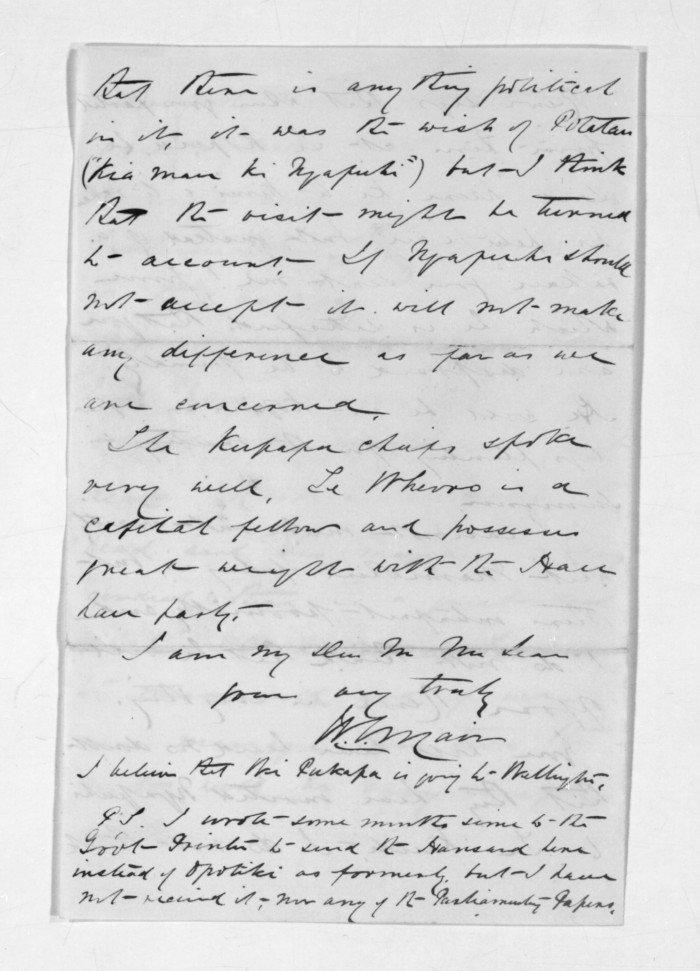 that there is any thing political
in it, it was the wish of Potatau
("Kia mau ki Ngapuhi") but I think
that the visit might be turned
to account. If Ngapuhi should
not accept it will not make
any difference as far as we
are concerned.
The Kupapa chiefs spoke
very well, Te Wheoro is a
capital fellow and possesses
great weight with the Hau
hau party.
I am my Dear Mr McLean
yours very truly
W.G. Mair
I believe that Wi Pukapa is going to Wellington.
P.S. I wrote some months since to the
Govt Printer to send the Hansard here
instead of Opotiki as formerly, but I have
not received it, nor any of the Parliamentary Papers.